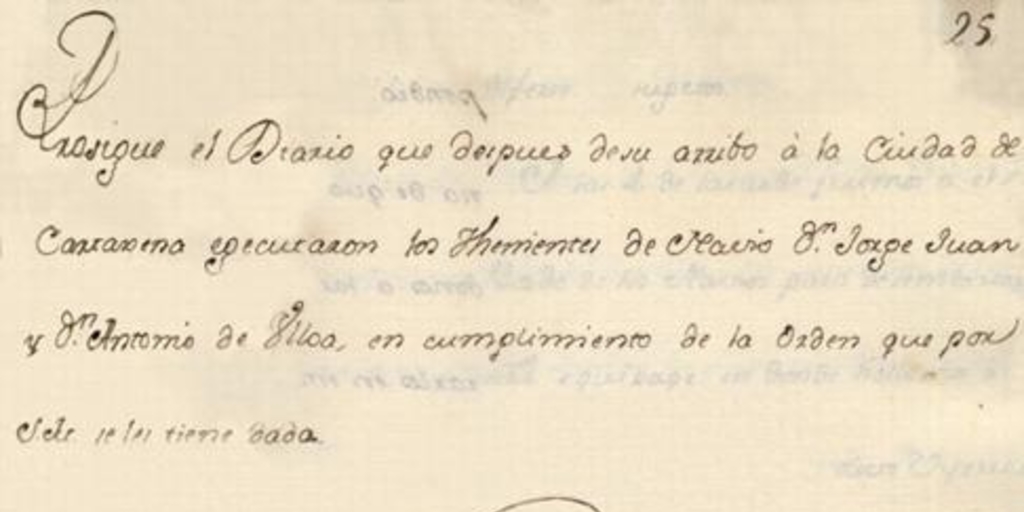 25
Prosigue el Diario que despues desu arribo à la Ciudad de
Cartaxena egecutaron los Thenientes de Navio Dn. Jorge Juan
y Dn. Antonio de Ulloa, en cumplimiento de la Orden que por
se les tiene dada.